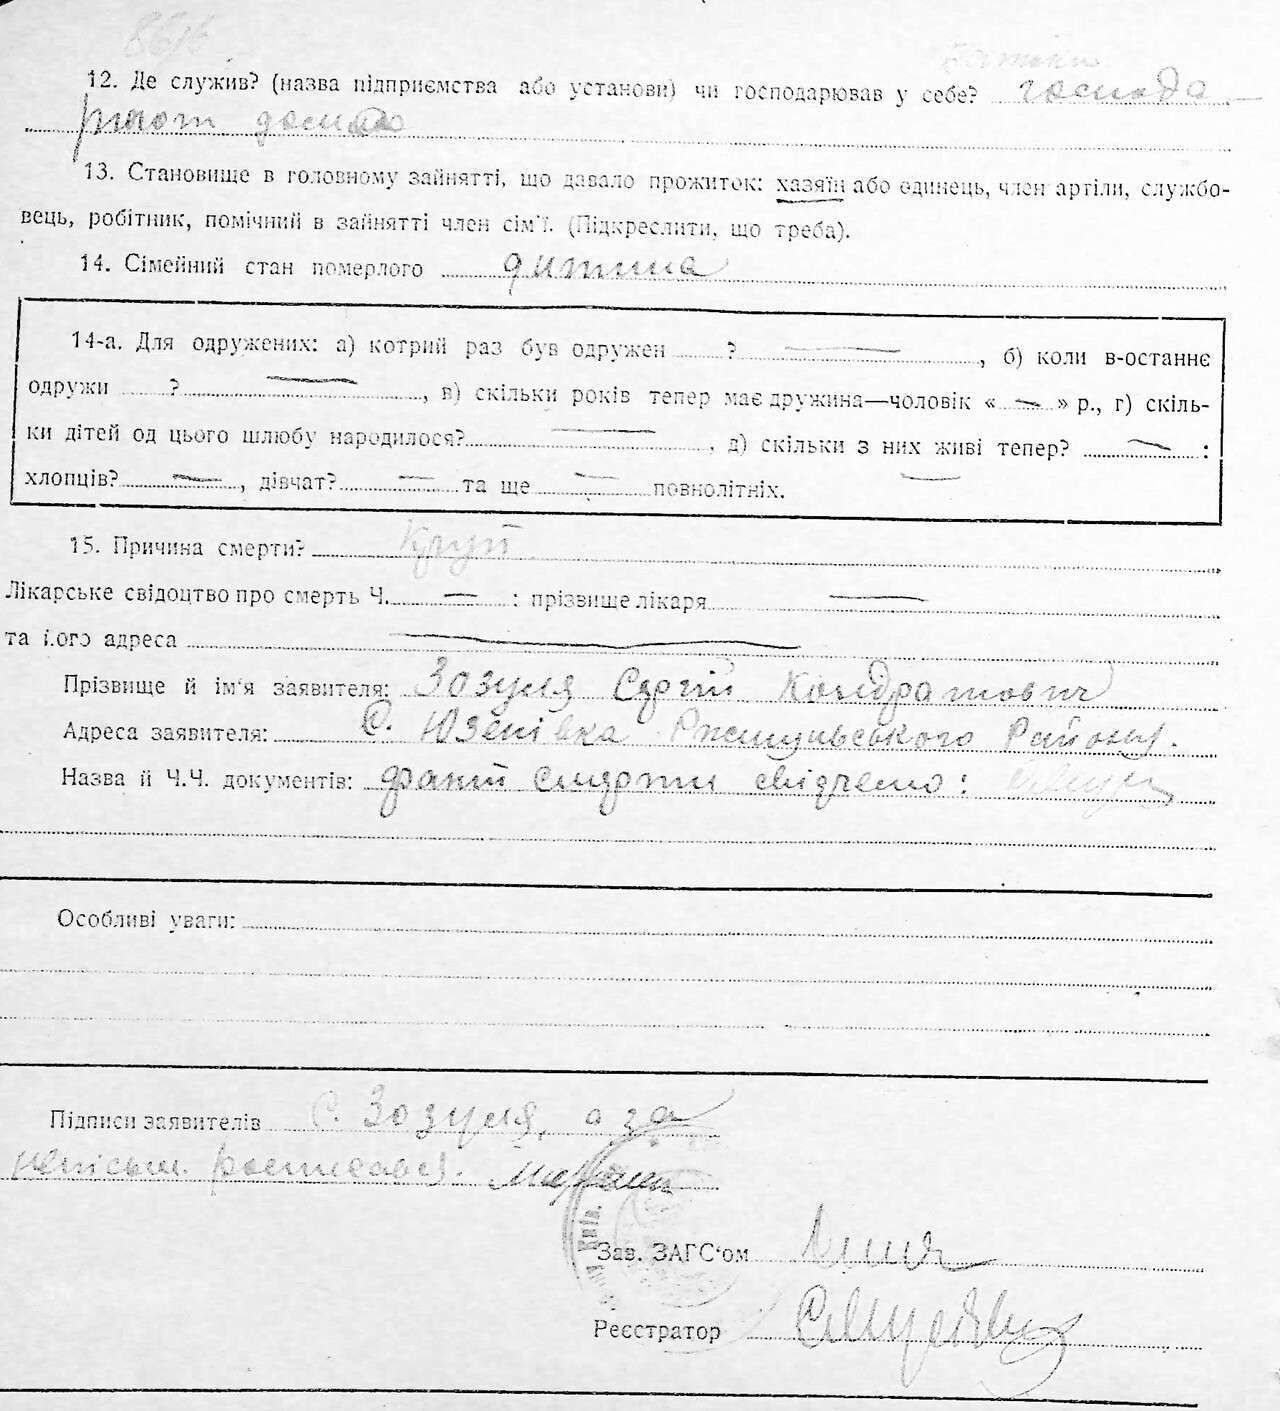 8616
батьки
12. Де служив? (назва підприємства або установи) чи господарював у себе? господа-
рюют дома
13. Становище в головному зайнятті, що давало прожиток: хазяїн або одинець, член артіли, службо-
вець, робітник, помічний в зайнятті член сім'ї. (Підкреслити, що треба).
14. Сімейний стан померлого дитина
14-а. Для одружених: а) котрий раз був одружен ? —, б) коли в-останнє
одружи ? —, в) скільки років тепер має дружина—чоловік « — » р., г) скіль-
ки дітей од цього шлюбу народилося? —, д) скільки з них живі тепер? — :
хлопців? —, дівчат? — та ще — повнолітніх. —
15. Причина смерти? Круп
Лікарське свідоцтво про смерть Ч. — : прізвище лікаря —
та його адреса —
Прізвище й ім'я заявителя: Зозуля Сергій Кондратович
Адреса заявителя: С. Юзенівка Ржищівського Району.
Назва й Ч.Ч. документів: факт смерти свідчемо:
Особливі уваги:
Підписи заявителів С. Зозуля, а за
неписьм. росписався.
Зав. ЗАГС'ом
Реєстратор